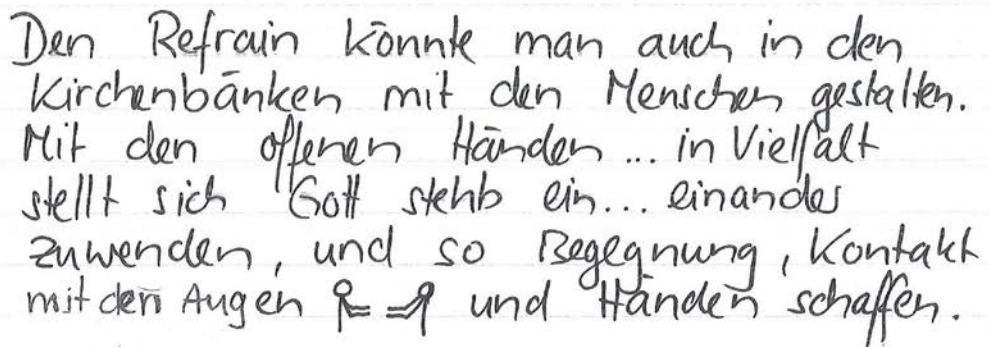 Den Refrain könnte man auch in den
Kirchenbänken mit den Menschen gestalten.
Mit den offenen Händen ... in Vielfalt
stellt sich Gott stehts ein ... einander
zuwenden, und so Begegnung, Kontakt
mit den Augen und Händen schaffen.